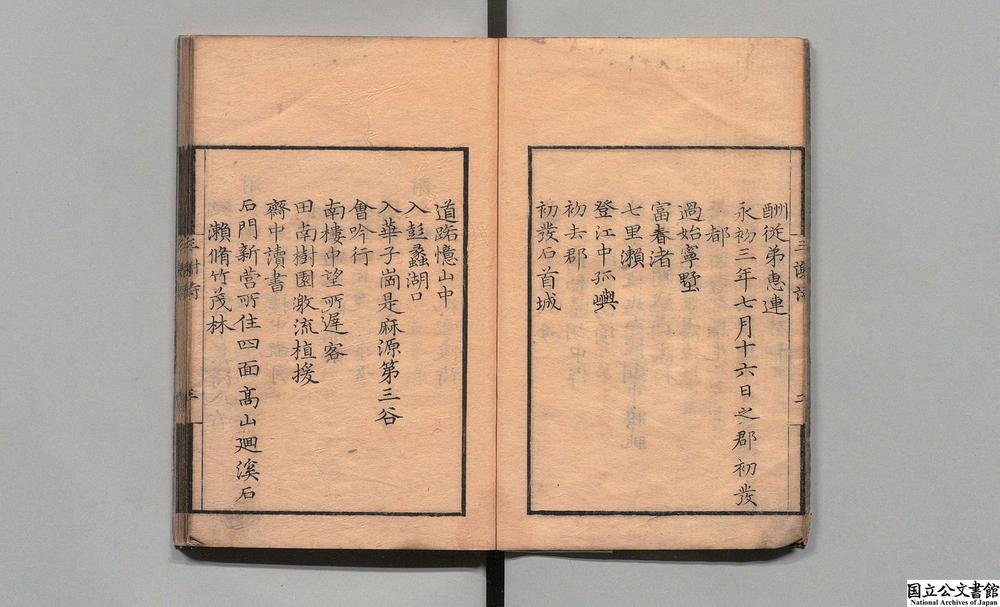 酬従弟惠連
永初三年七月十六日之郡初發
都
過始寧墅
富春渚
七里瀨
登江中孤嶼
初去郡
初發石首城
道路憶山中
入彭蠡湖口
入華子崗是麻源第三谷
會吟行
南樓中望所遲客
田南樹園激流植援
齋中讀書
石門新營所住四面高山廻溪石
瀨脩竹茂林
三謝詩
二
三謝詩
三
国立公文書館
National Archives of Japan